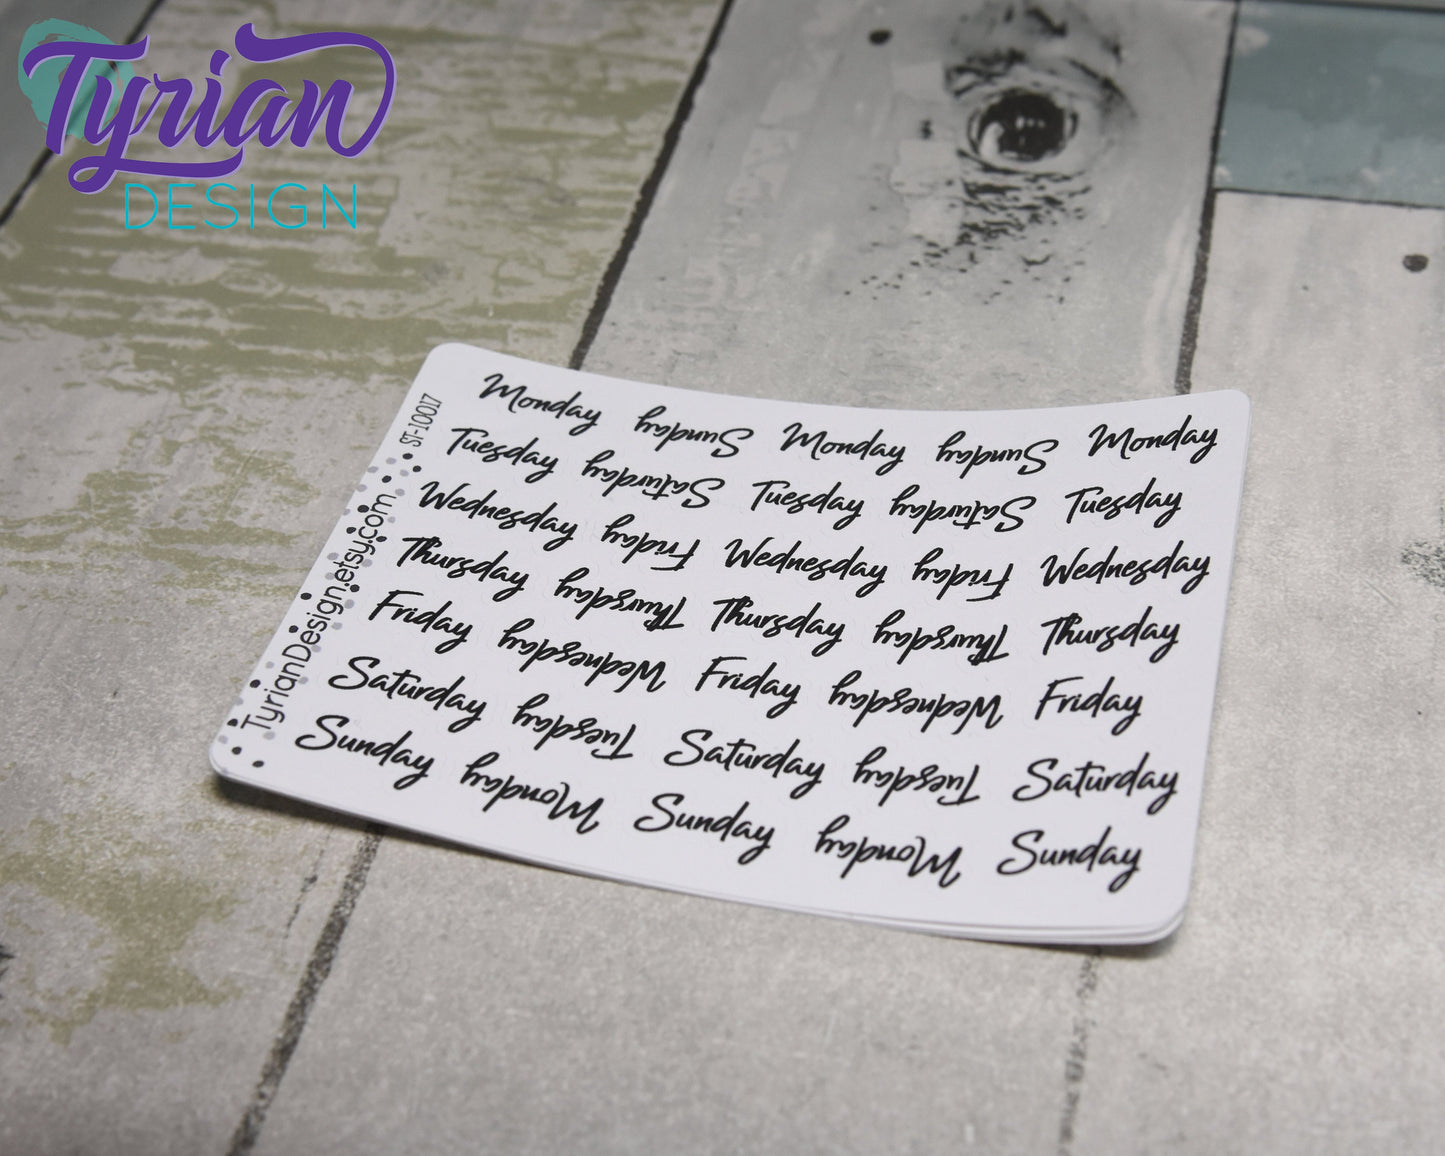 Tyrian
DESIGN
ST-10017
TyrianDesign.etsy.com
Monday Sunday Monday Sunday Monday
Tuesday Saturday Tuesday Saturday Tuesday
Wednesday Friday Wednesday Friday Wednesday
Thursday Thursday Thursday Thursday Thursday
Friday Wednesday Friday Wednesday Friday
Saturday Tuesday Saturday Tuesday Saturday
Sunday Monday Sunday Monday Sunday